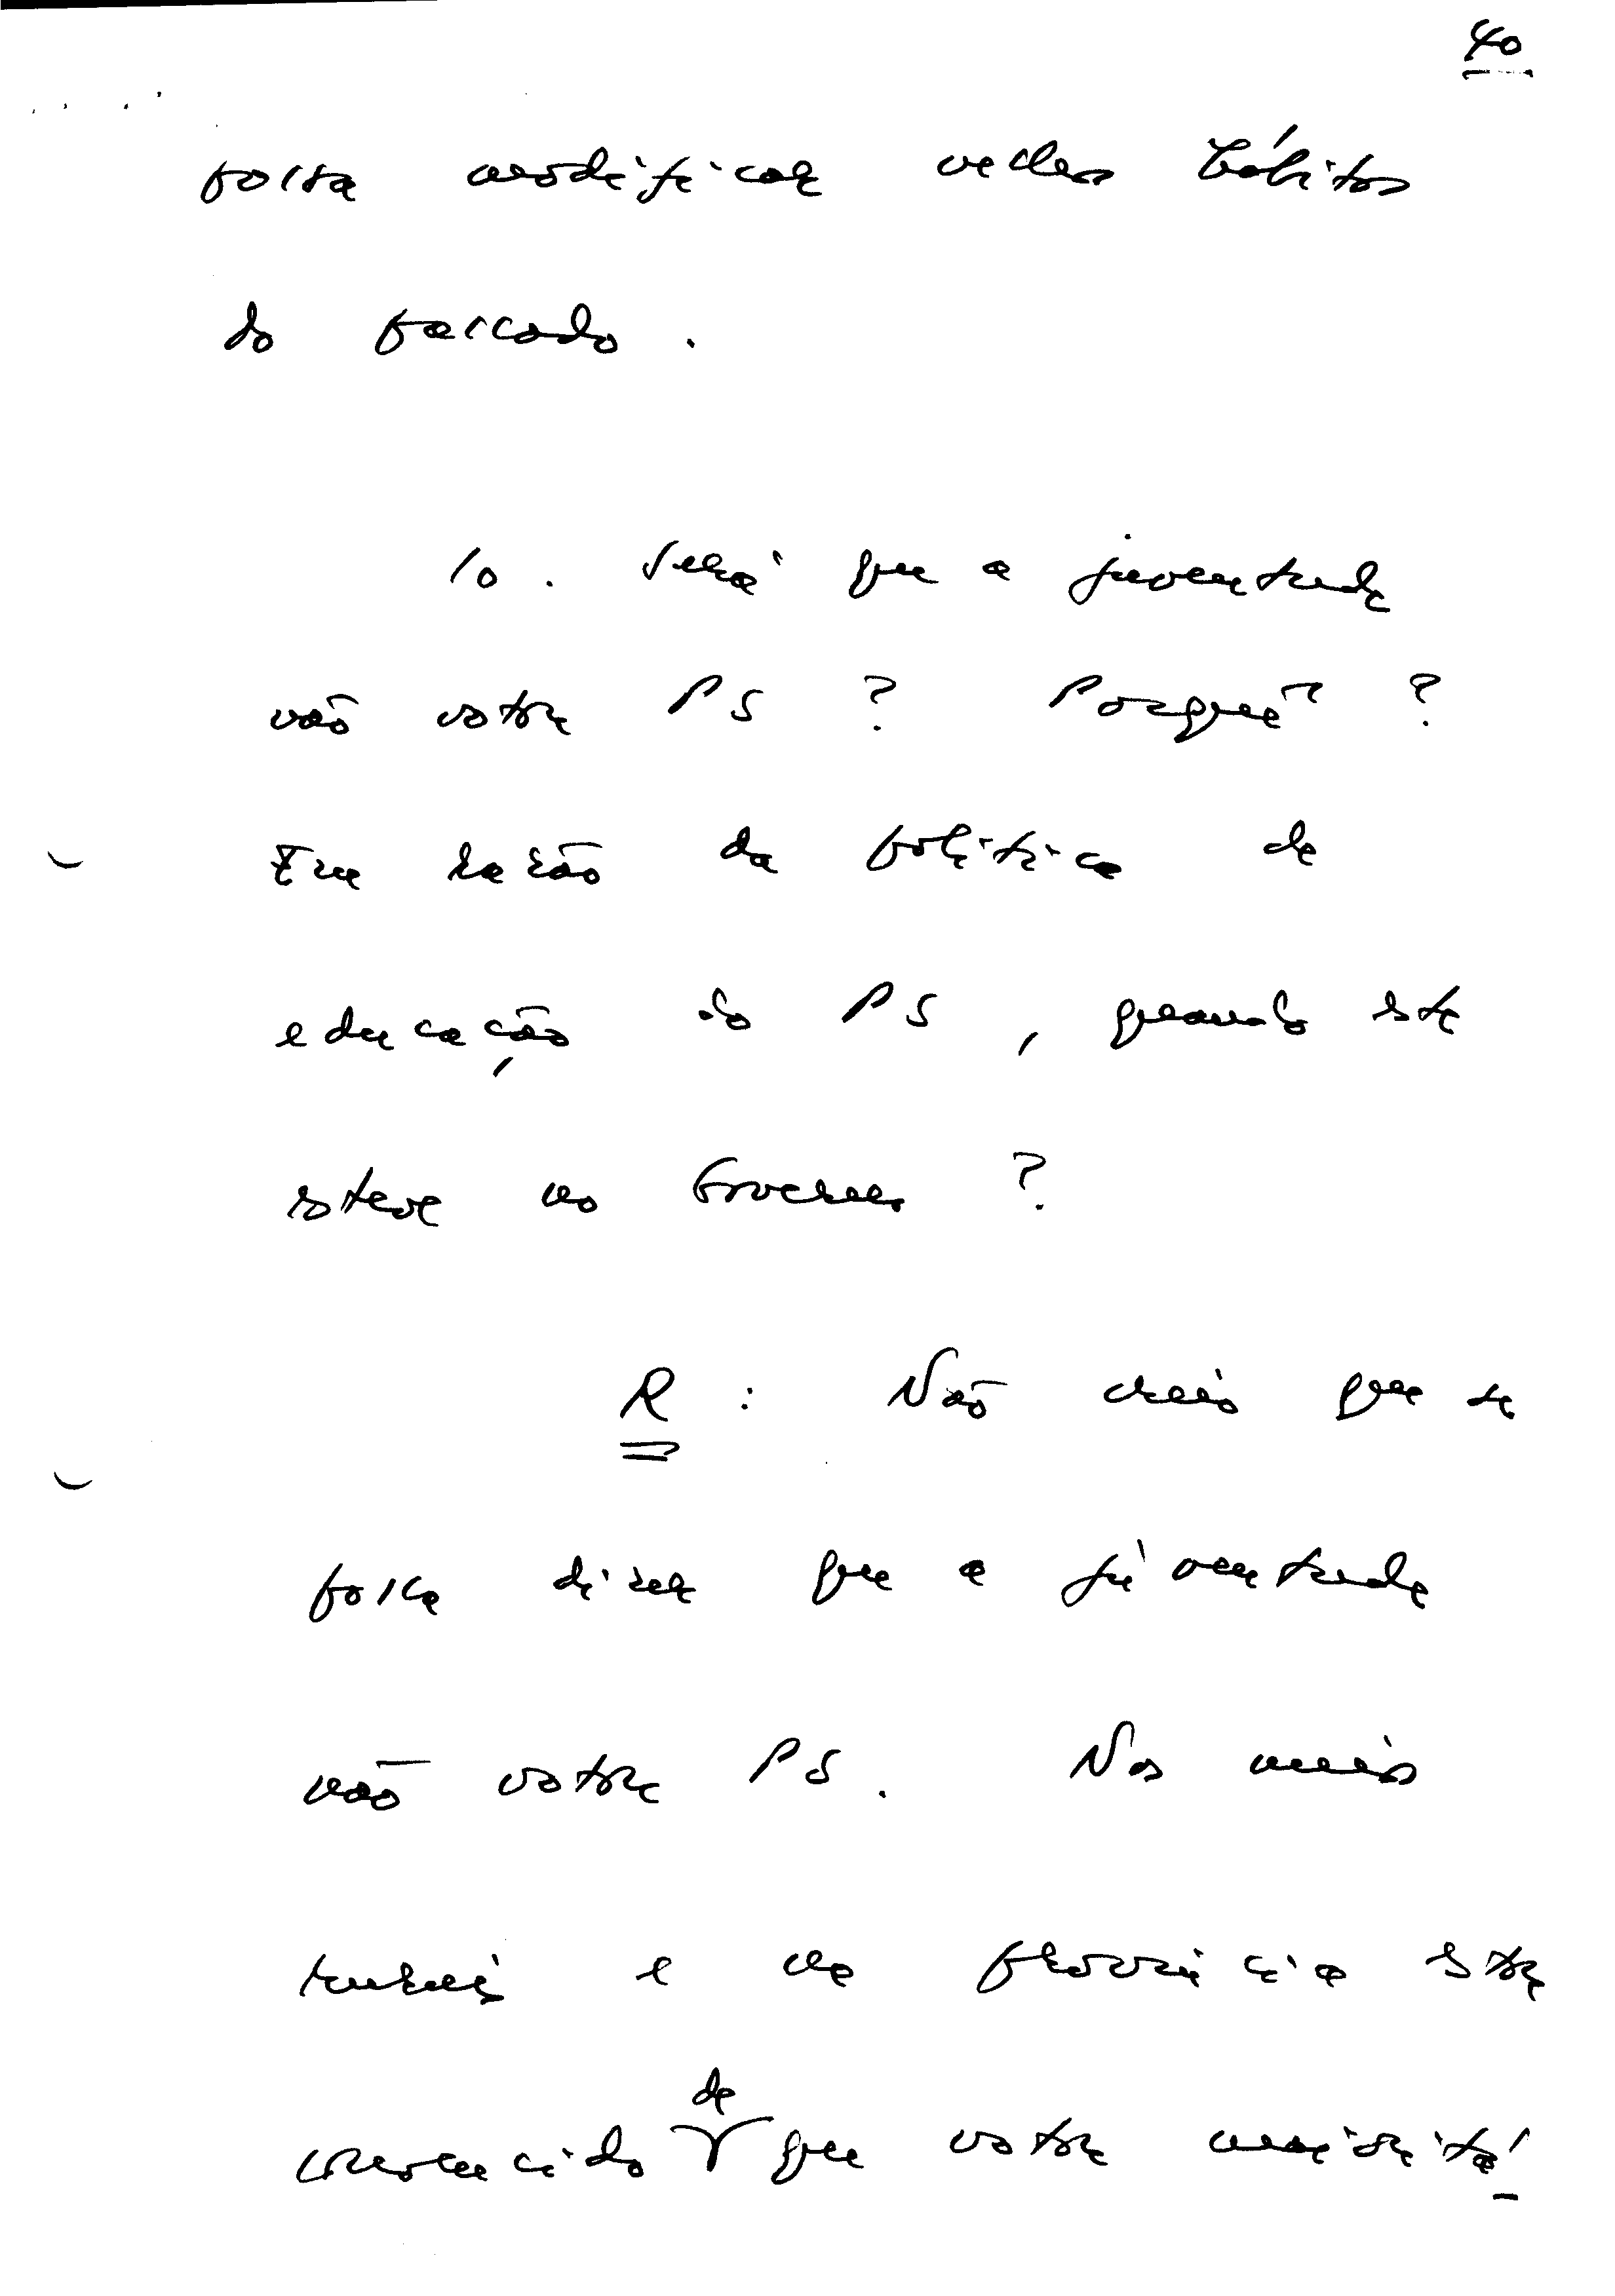 40
possa modificar velhos hábitos
do passado.
10. Será que a juventude
não vota PS? Porquê?
Em razão da política de
educação do PS, quando este
esteve no Governo?
R: Não creio que se
possa dizer que a juventude
não vota PS. Nos meios
rurais e na província estou
convencido de que vota maiorita-